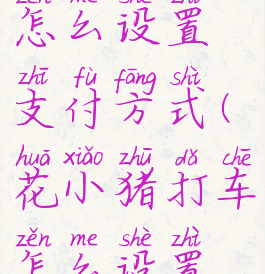 zěn me shè zhì
怎么设置
zhī fù fāng shì
支付方式(
huā xiǎo zhū dǎ chē
花小猪打车
zěn me shè zhì
怎么设置